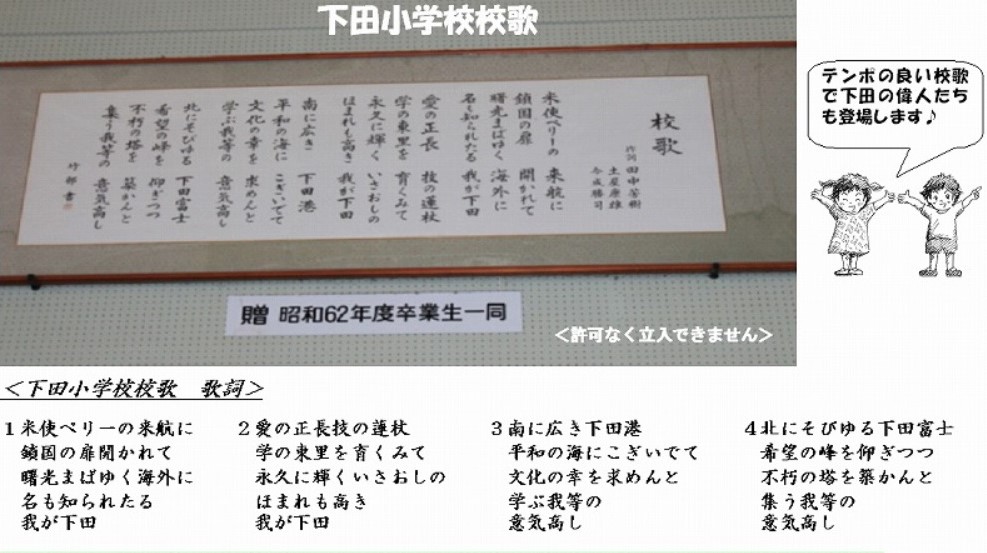 下田小学校校歌
校歌
作詞
米使ペリーの 来航に
鎖国の扉 開かれて
曙光まばゆく 海外に
名も知られたる 我が下田
愛の正長 技の蓮杖
学の東里を 育くみて
永久に輝く いさおしの
ほまれも高き 我が下田
南に広き 下田港
平和の海に こぎいでて
文化の幸を 求めんと
学ぶ我等の 意気高し
北にそびゆる 下田富士
希望の峰を 仰ぎつつ
不朽の塔を 築かんと
集う我等の 意気高し
贈 昭和62年度卒業生一同
＜許可なく立入できません＞
テンポの良い校歌
で下田の偉人たち
も登場します♪
＜下田小学校校歌　歌詞＞
1 米使ペリーの来航に
鎖国の扉開かれて
曙光まばゆく海外に
名も知られたる
我が下田
2 愛の正長技の蓮杖
学の東里を育くみて
永久に輝くいさおしの
ほまれも高き
我が下田
3 南に広き下田港
平和の海にこぎいでて
文化の幸を求めんと
学ぶ我等の
意気高し
4 北にそびゆる下田富士
希望の峰を仰ぎつつ
不朽の塔を築かんと
集う我等の
意気高し